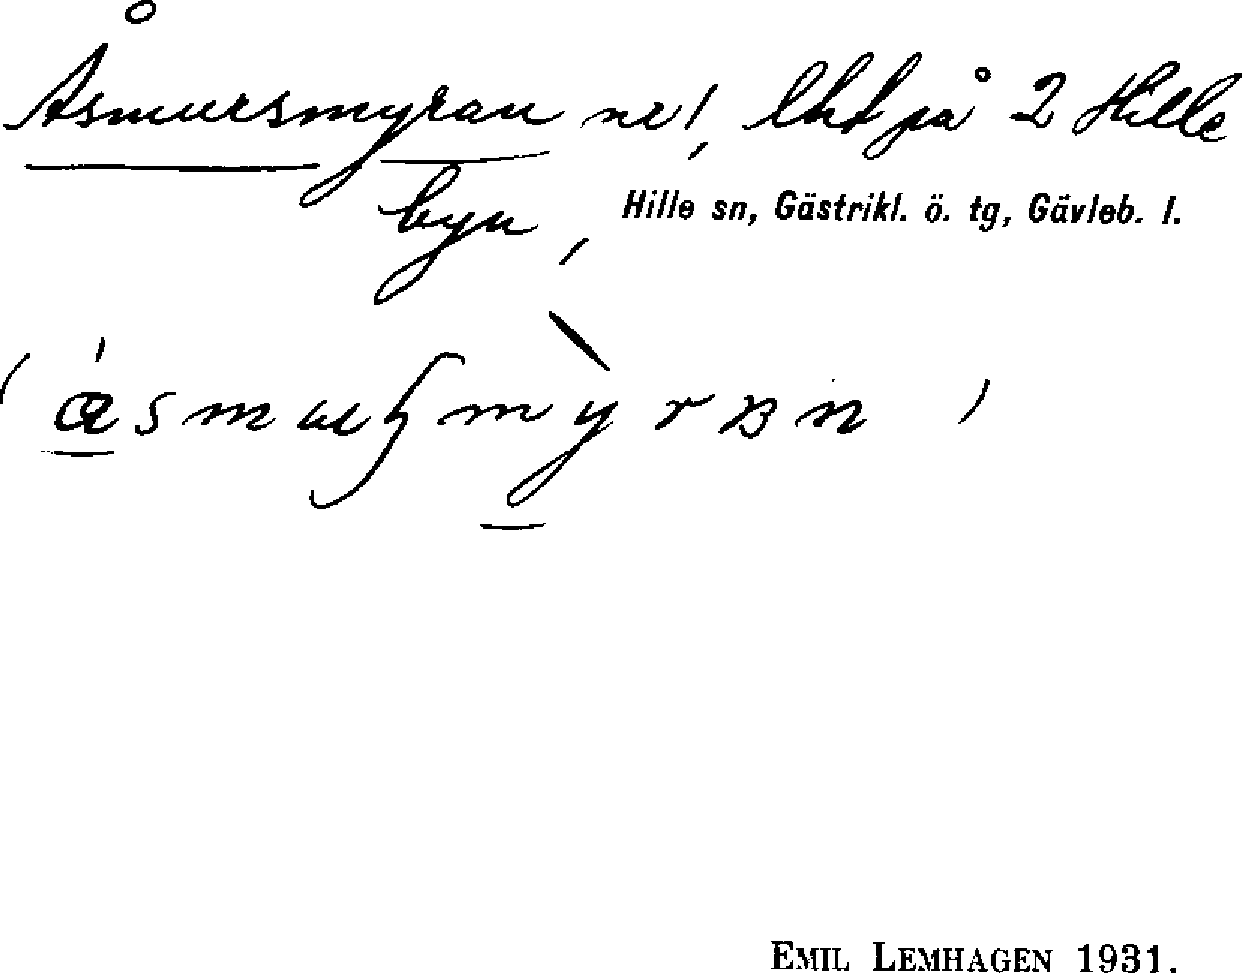 Åsmursmyran nr!, lht på 2 Hille
byn,
Hille sn, Gästrikl. ö. tg, Gävleb. l.
EMIL LEMHAGEN 1931.